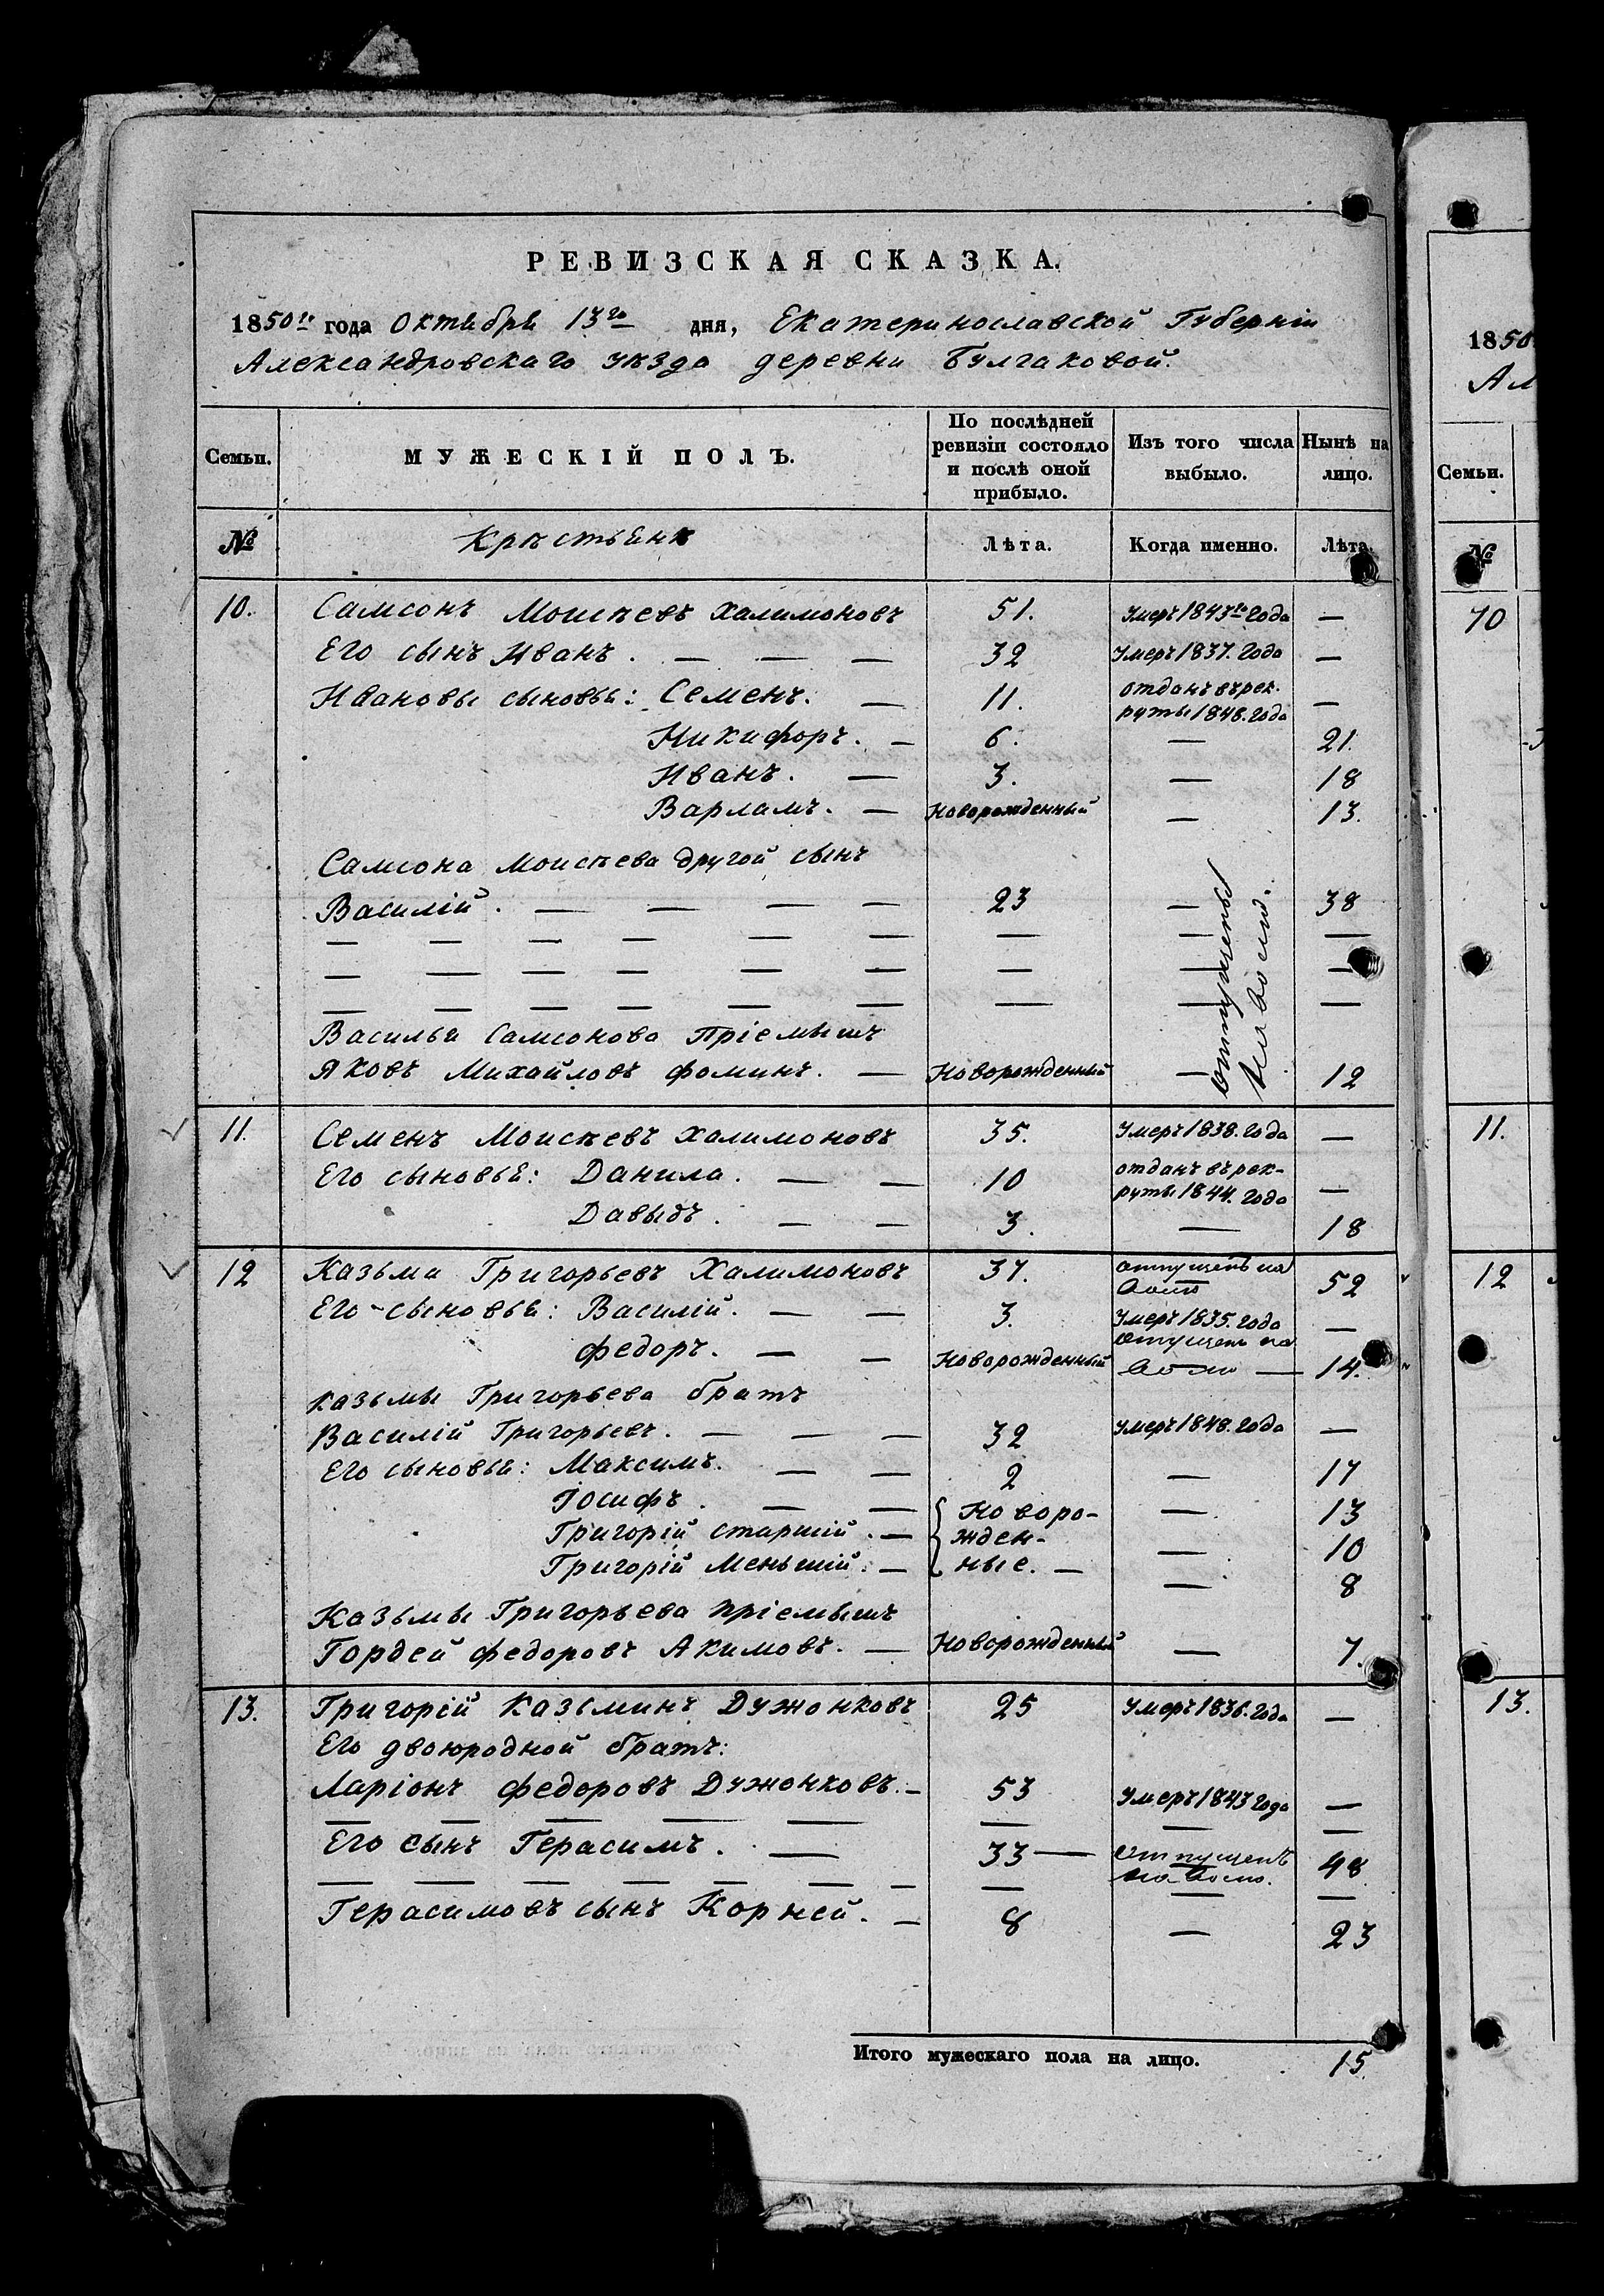 РЕВИЗСКАЯ СКАЗКА.
1850го года Октября 13го дня, Екатеринославской Губерніи
Александровскаго уѣзда деревни Булгаковой.
Семьи. МУЖЕСКІЙ ПОЛЪ. По послѣдней ревизіи состояло и послѣ оной прибыло. Изъ того числа выбыло. Нынѣ на лицо.
№ Крѣстьянѣ Лѣта. Когда именно. Лѣта.
10. Самсонъ Моисѣевъ Халимоновъ 51. Умеръ 1843го года —
Его сынъ Иванъ. — — — 32 Умеръ 1837. года —
Ивановы сыновья: Семенъ. — 11. отданъ въ рек-
руты 1848. года —
Никифоръ. — 6. — 21.
Иванъ. — 3. — 18
Варламъ. — Новорожденный — 13.
Самсона Моисѣева другой сынъ
Василій. — — — — 23 — 38
— — — — — — — — —
— — — — — — — — —
— — — — — — — — —
отпущены
на волю.
Василья Самсонова Пріемышъ
Яковъ Михайловъ Фоминъ. — Новорожденный — 12
11. Семенъ Моисѣевъ Халимоновъ 35. Умеръ 1838. года —
Его сыновья: Данила. — — 10 отданъ въ рек-
руты 1844. года —
Давыдъ. — — 3. — 18
12 Казьма Григорьевъ Халимоновъ 37. отпущенъ на
волю 52
Его сыновья: Василій. — — 3. Умеръ 1835. года —
Федоръ. — — Новорожденный отпущенъ на
волю — 14.
Казьмы Григорьева братъ
Василій Григорьевъ. — — — 32 Умеръ 1848. года —
Его сыновья: Максимъ. — — 2 — 17
Іосифъ. — — { Новоро- — 13
Григорій старшій. — жден- — 10
Григорій Меньшій. — ные. — — 8
Казьмы Григорьева пріемышъ
Гордей Федоровъ Акимовъ. — Новорожденный — 7.
13. Григорій Казьминъ Дужонковъ 25 Умеръ 1836. года —
Его двоюродной братъ:
Ларіонъ Федоровъ Дужонковъ. — 53 Умеръ 1843 года —
— — — — — — —
Его сынъ Герасимъ. — 33 — отпущенъ
на волю. 48
— — — — — — — — — —
Герасимовъ сынъ Корней. — 8 — 23
Итого мужескаго пола на лицо. 15.
1850
Ал
Семьи.
№
10
11.
12
13.